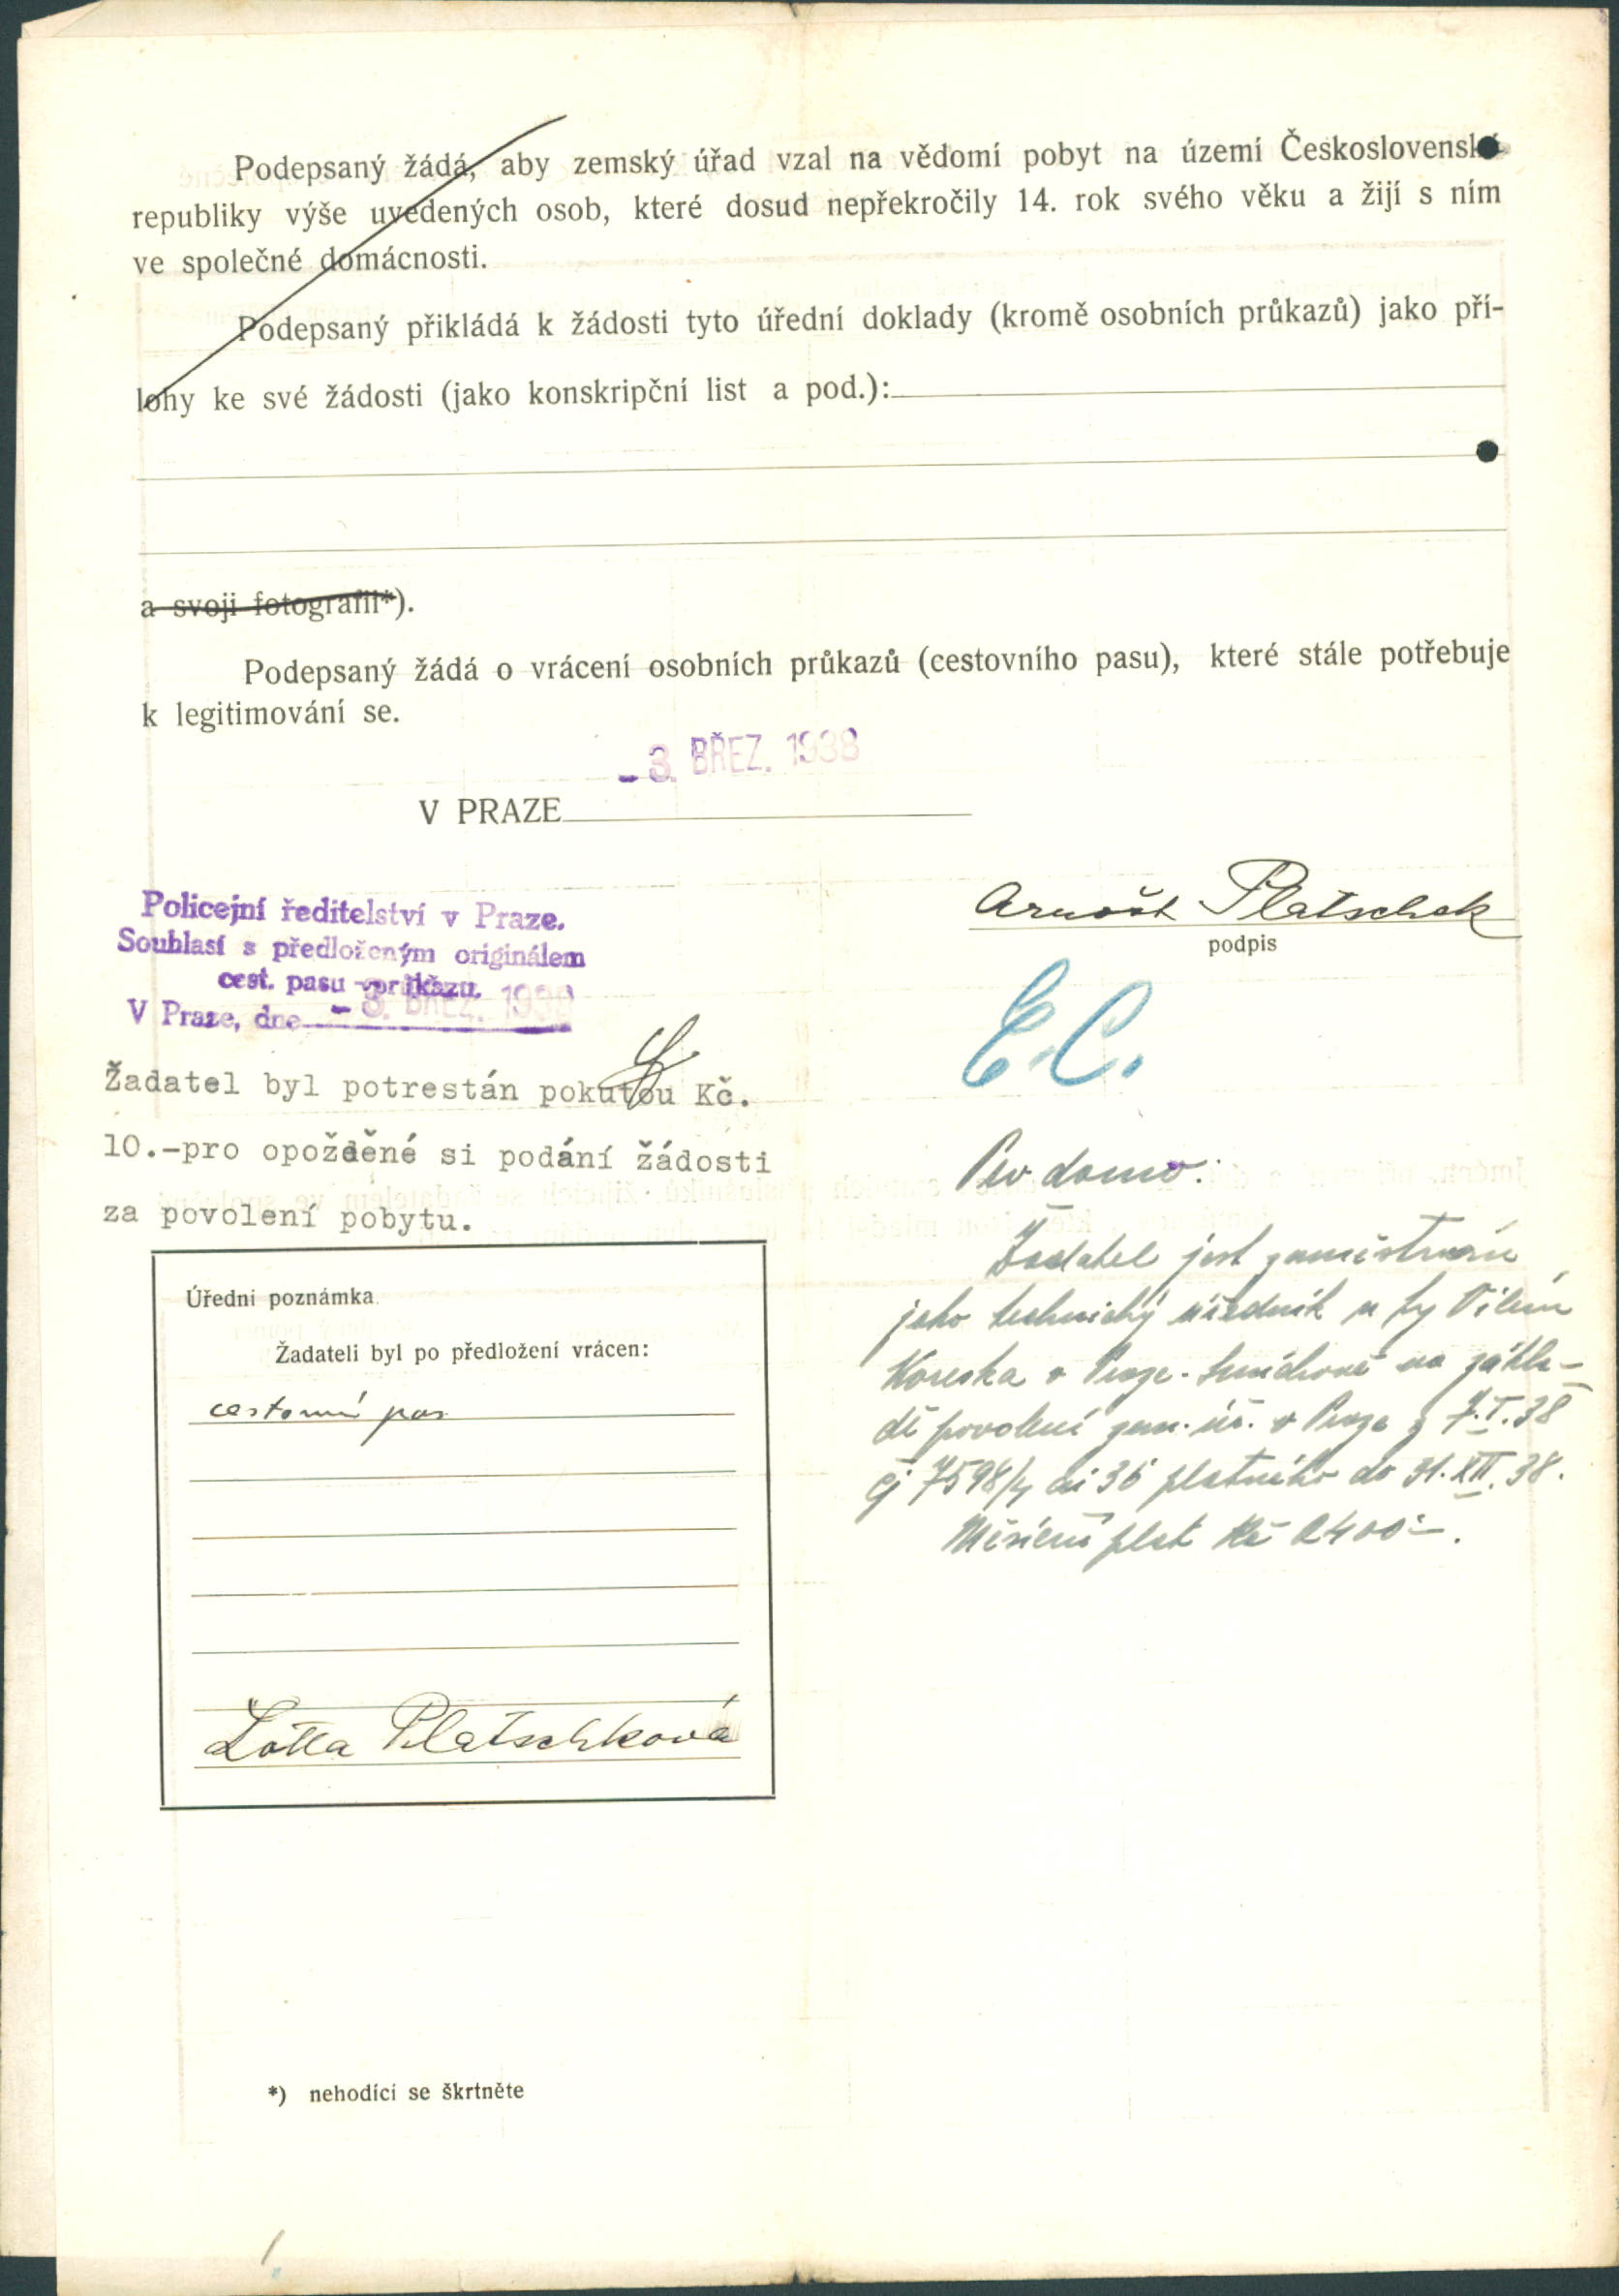 Podepsaný žádá, aby zemský úřad vzal na vědomí pobyt na území Československé
republiky výše uvedených osob, které dosud nepřekročily 14. rok svého věku a žijí s ním
ve společné domácnosti.
Podepsaný přikládá k žádosti tyto úřední doklady (kromě osobních průkazů) jako pří-
lohy ke své žádosti (jako konskripční list a pod.):
a svoji fotografii*).
Podepsaný žádá o vrácení osobních průkazů (cestovního pasu), které stále potřebuje
k legitimování se.
- 3. BŘEZ. 1938
V PRAZE
Arnošt Platschek
podpis
Policejní ředitelství v Praze.
Souhlasí s předloženým originálem
cest. pasu
V Praze, dne - 3. BŘEZ. 1938
E. C.
Žadatel byl potrestán pokutou Kč.
10.-pro opožděné si podání žádosti
za povolení pobytu.
Pro domo:
Žadatel jest zaměstnán
jako technický úředník u fy Vilém
v Praze - Smíchově na zákla-
dě povolení zem. úř. v Praze z 7.I.38
čj 7598/4 ai 36 platného do 31.XII.38.
Měsíční plat Kč 2400.-.
Úřední poznámka
Žadateli byl po předložení vrácen:
cestovní pas
Lotta Platschková
*) nehodící se škrtněte